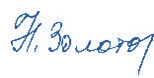 Н. Золотор